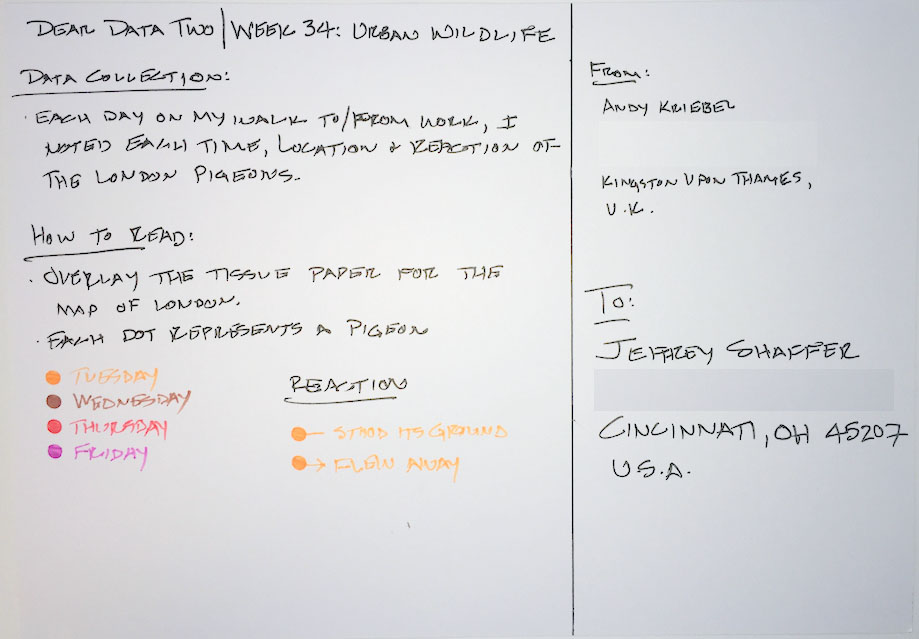 DEAR DATA TWO | WEEK 34: URBAN WILDLIFE
DATA COLLECTION:
· EACH DAY ON MY WALK TO/FROM WORK, I
NOTED EACH TIME, LOCATION & REACTION OF
THE LONDON PIGEONS.
HOW TO READ:
· OVERLAY THE TISSUE PAPER FOR THE
MAP OF LONDON.
· EACH DOT REPRESENTS A PIGEON
TUESDAY
WEDNESDAY
THURSDAY
FRIDAY
REACTION
STOOD ITS GROUND
FLEW AWAY
FROM:
ANDY KRIEBEL
KINGSTON UPON THAMES,
U.K.
TO:
JEFFREY SHAFFER
CINCINNATI, OH 45207
U.S.A.